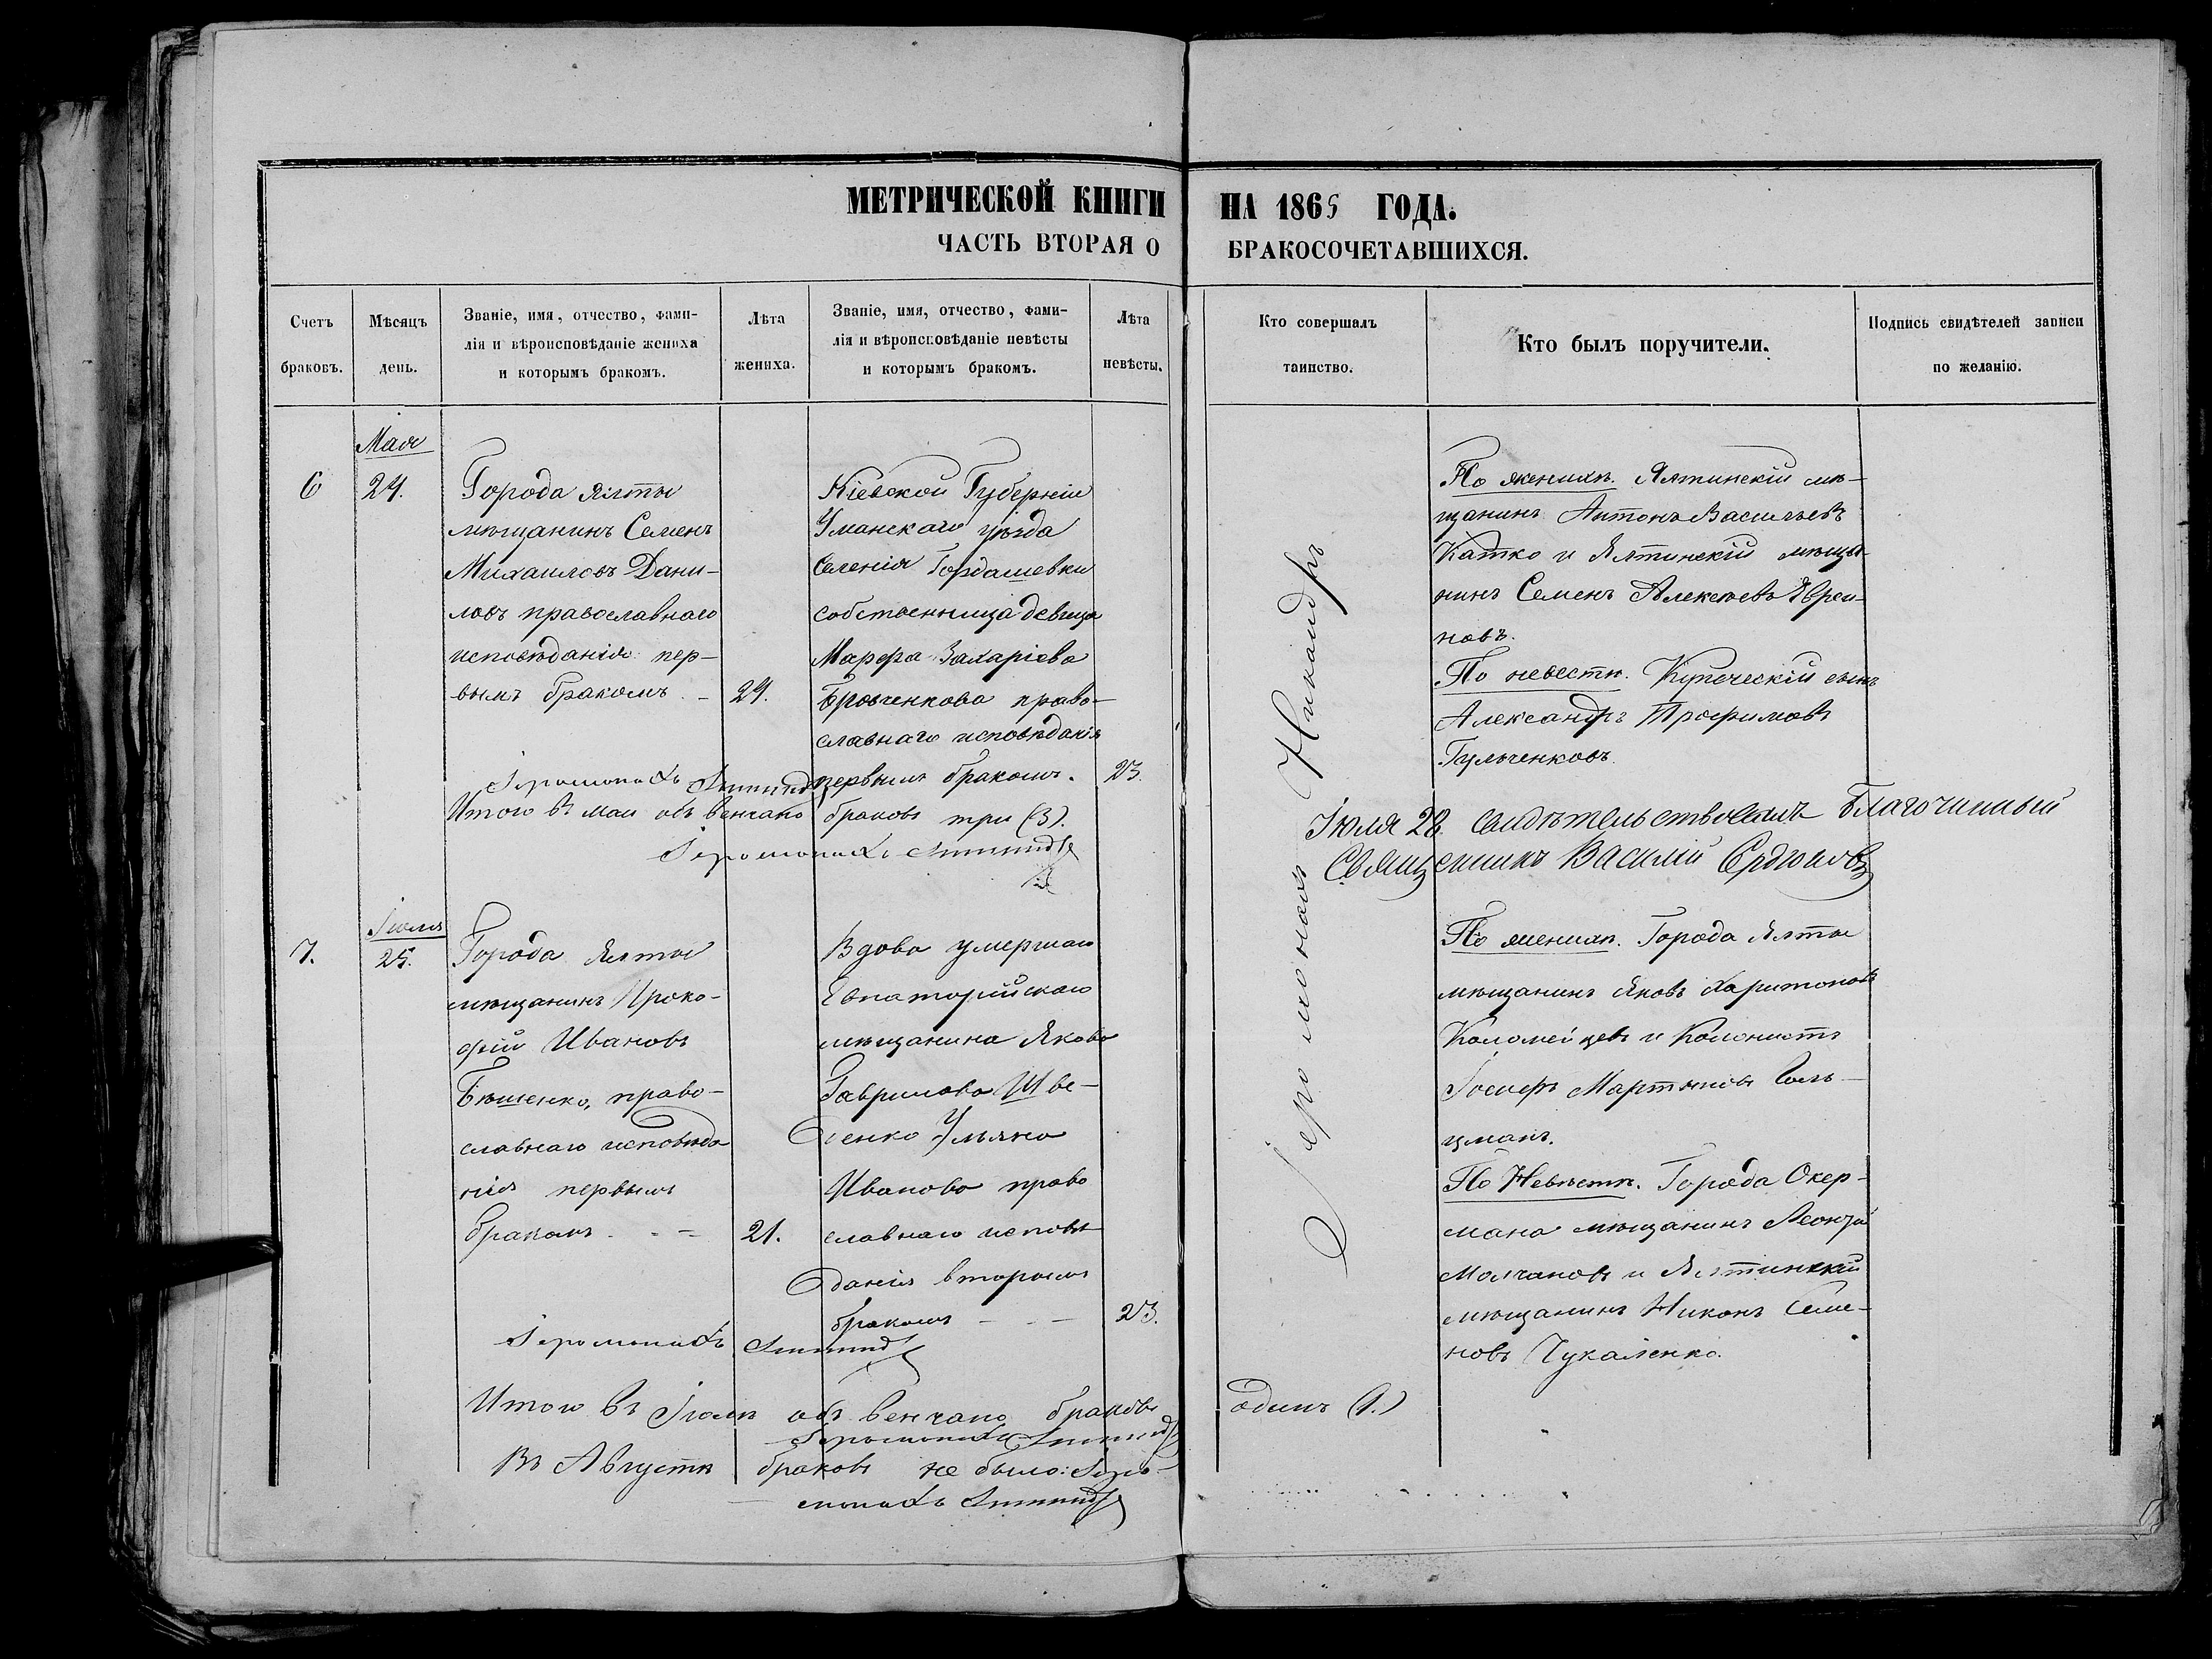 МЕТРИЧЕСКОЙ КНИГИ НА 1865 ГОДА.
ЧАСТЬ ВТОРАЯ О БРАКОСОЧЕТАВШИХСЯ.
Счетъ
браковъ.
Мѣсяцъ
день.
Званіе, имя, отчество, фами-
лія и вѣроисповѣданіе жениха
и которымъ бракомъ.
Лѣта
жениха.
Званіе, имя, отчество, фами-
лія и вѣроисповѣданіе невѣсты
и которымъ бракомъ.
Лѣта
невѣсты.
Кто совершалъ
таинство.
Кто былъ поручители.
Подпись свидѣтелей записи
по желанію.
6
Мая
24.
Города Ялты
мѣщанинъ Семенъ
Михаиловъ Дани-
ловъ православнаго
исповѣданія пер-
вымъ бракомъ. -
24.
Кіевской Губерніи
Уманскаго уѣзда
селенія Гордашевки
собственница девица
Марфа Захаріева
православнаго исповѣданія
первымъ бракомъ.
23.
Іеромонахъ
Итого въ маи обвенчано браковъ три (3).
Іеромонахъ
Іеромонахъ Никандръ
По женихѣ. Ялтинскій мѣ-
щанинъ Антонъ Васильевъ
Катко и Ялтинскій мѣща-
нинъ Семенъ Алексѣевъ Еврей-
новъ.
По невестѣ. Купеческій сынъ
Александръ Трофимовъ
Гульченковъ.
Іюля 28. свидѣтельствовалъ Благочинный
Священникъ Василій
7.
Іюля
25.
Города Ялты
мѣщанинъ Проко-
фій Ивановъ
Бѣшенко, право-
славнаго исповѣда
нія первымъ
бракомъ. - =
21.
Вдова умершаго
Евпаторійскаго
мѣщанина Якова
Гаврилова Шве-
Ульяна
Иванова право
славнаго исповѣ
данія вторымъ
бракомъ - - -
23.
Іеромонахъ
По женихѣ. Города Ялты
мѣщанинъ Яковъ Харитоновъ
Коломейцевъ и Колонистъ
Іосифъ Мартыновъ Голь-
цманъ.
По Невѣстѣ. Города Окер-
мана мѣщанинъ Леонтій
Молчановъ и Ялтинскій
мѣщанинъ Никонъ Семе-
новъ Чукаленко.
Итого въ Іюлѣ обвенчано браковъ одинъ (1.)
Іеромонахъ
Въ Августѣ браковъ не было: Іеро-
монахъ